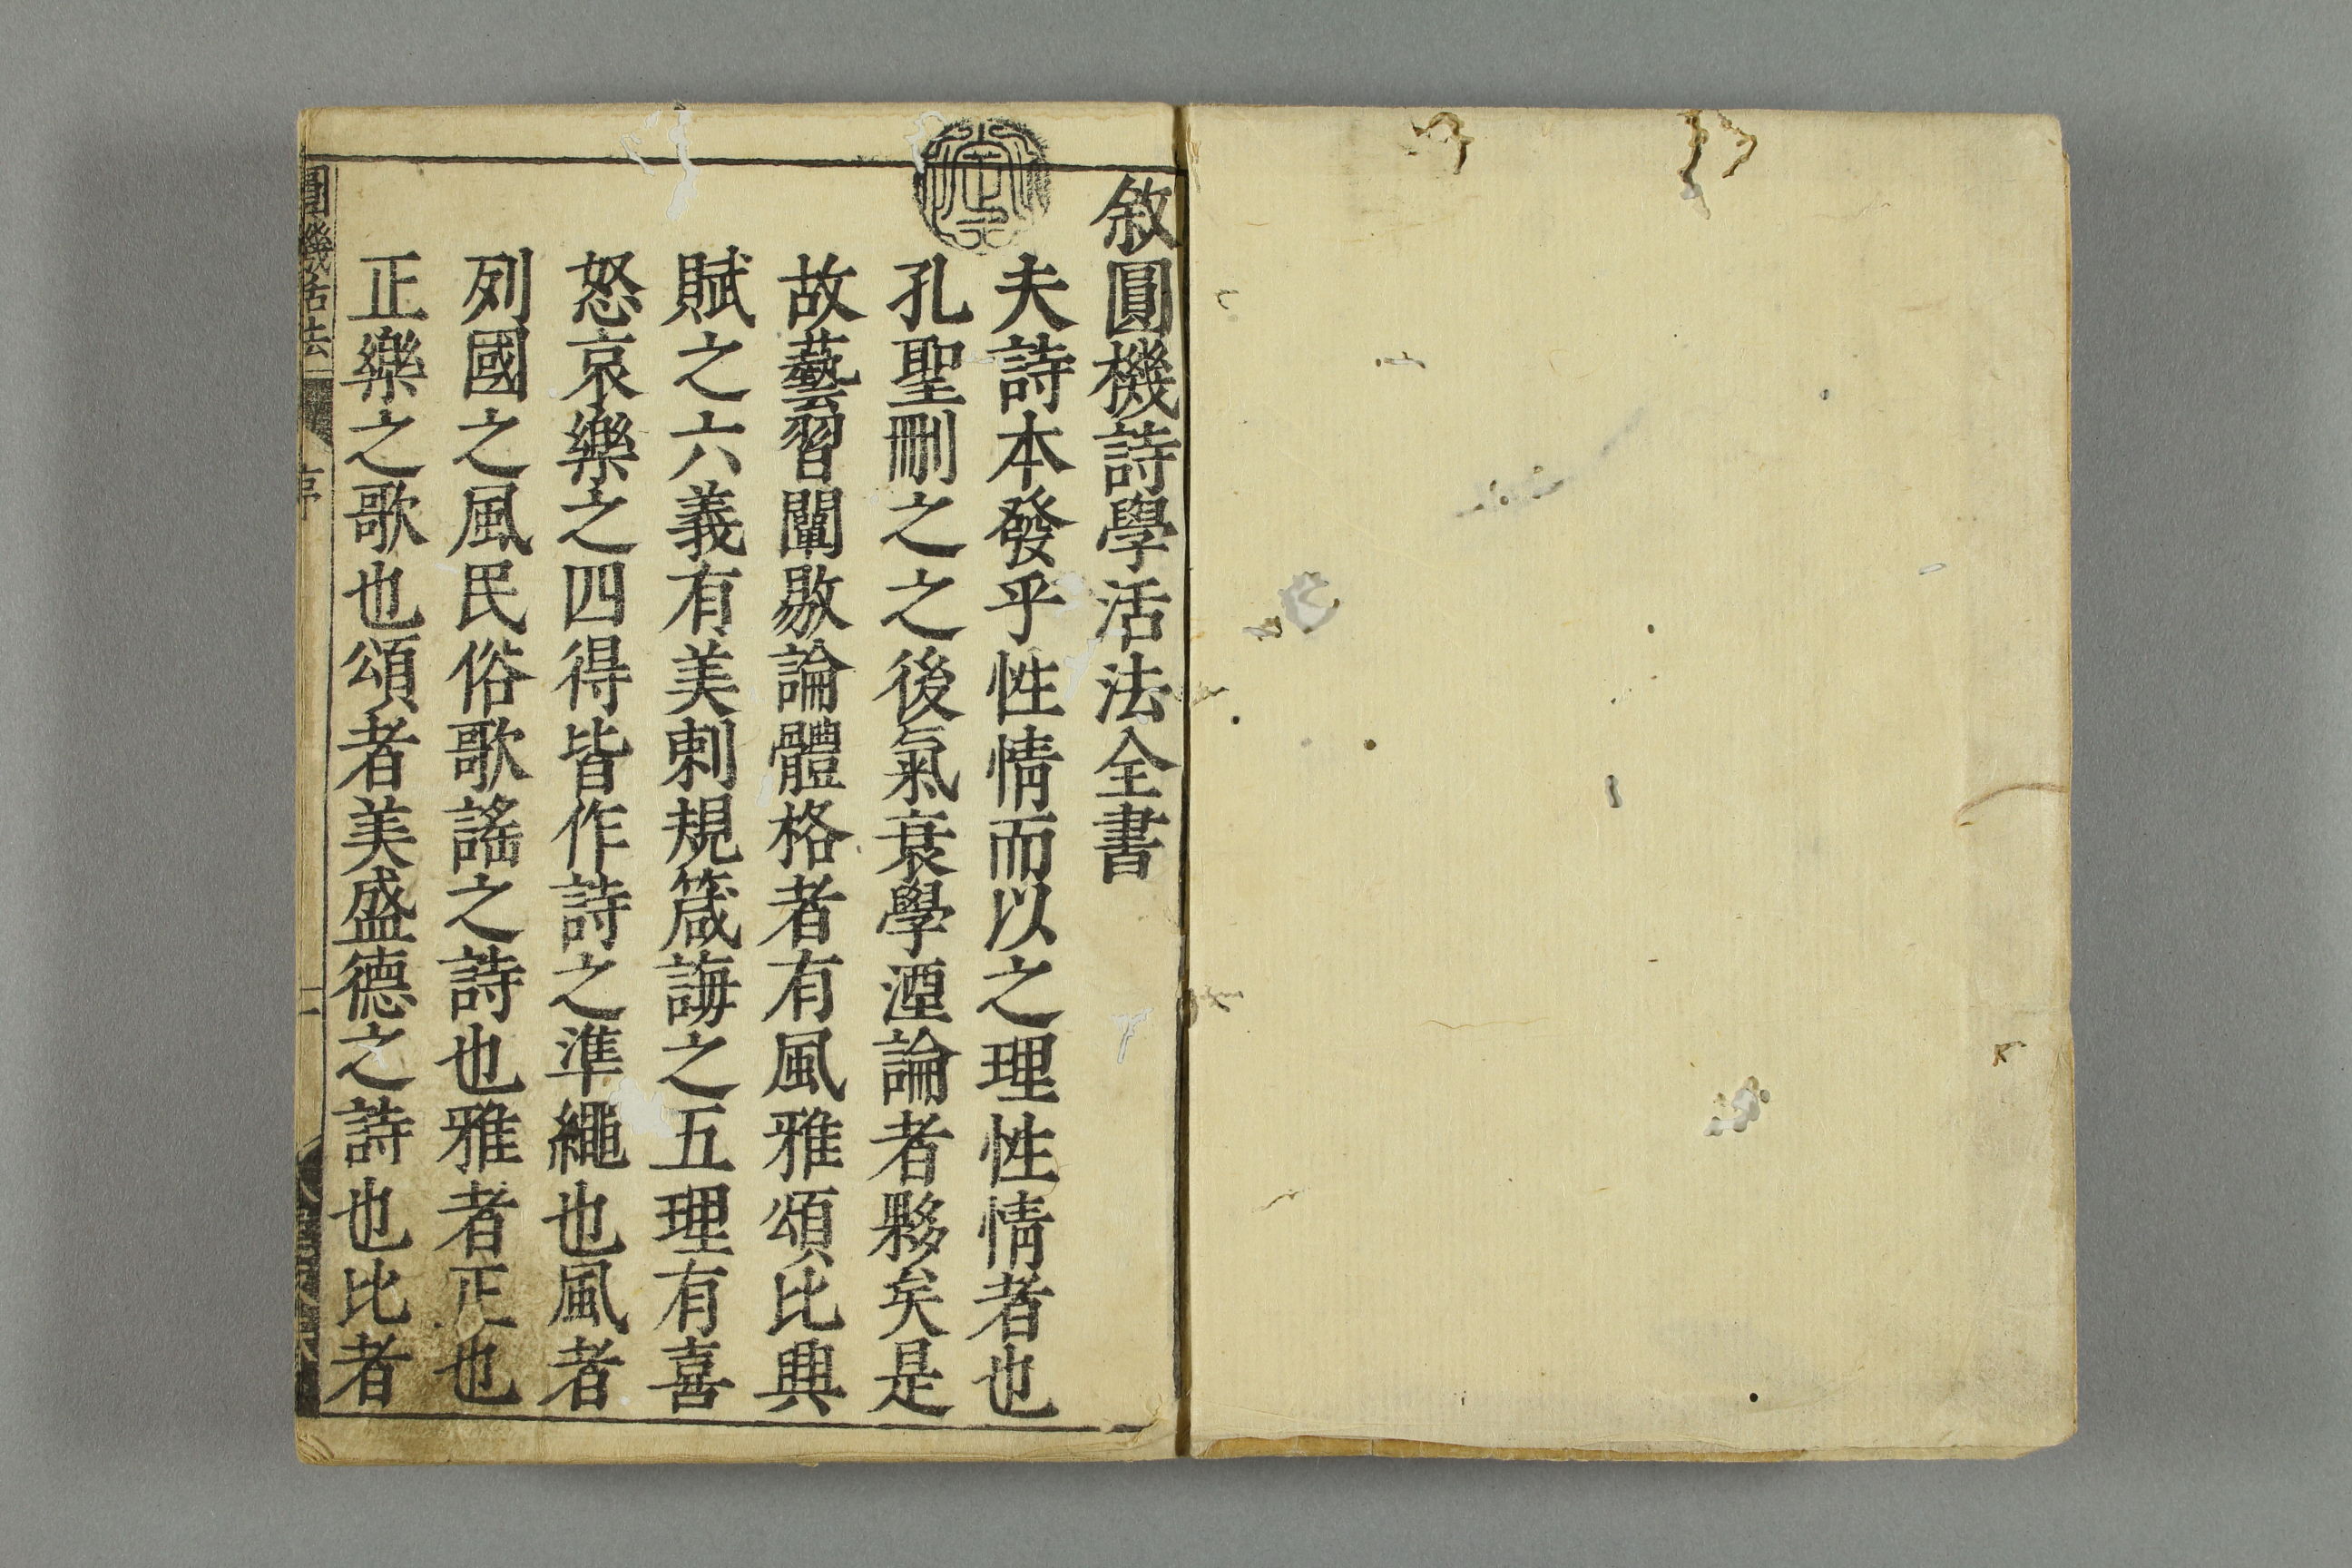 敘圓機詩學活法全書
夫詩本發乎性情而以之理性情者也
孔聖刪之之後氣衰學湮論者夥矣是
故藝習闡敭論體格者有風雅頌比興
賦之六義有美刺規箴誨之五理有喜
怒哀樂之四得皆作詩之準繩也風者
列國之風民俗歌謠之詩也雅者正也
正樂之歌也頌者美盛德之詩也比者
圓機活法
序